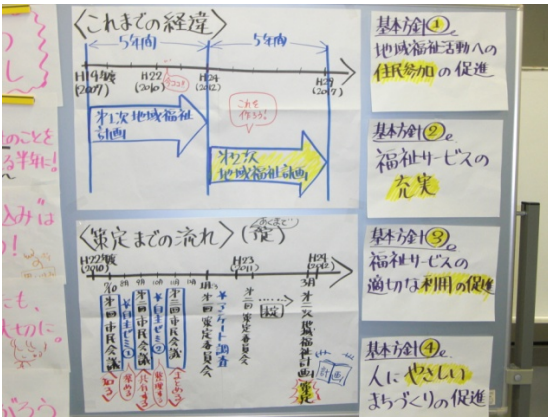 〈これまでの経緯〉
5年間
5年間
H19年度
(2007)
H22
(2010)
ココ!!
H24
(2012)
H29
(2017)
第1次地域福祉
計画
これを
作ろう!
第2次
地域福祉計画
〈策定までの流れ〉(予定)
あくまで
H22年度
(2010)
H23
(2011)
H24
(2012)
8月
9月
10月
11月
1月
3月
第一回市民会議
自主ゼミ①
第二回市民会議
自主ゼミ②
第三回市民会議
第一回策定委員会
アンケート調査
第二回策定委員会
第二次地域福祉計画策定
計画
知る
深める
まとめる
基本方針①
地域福祉活動への
住民参加の促進
基本方針②
福祉サービスの
充実
基本方針③
福祉サービスの
適切な利用の促進
基本方針④
人にやさしい
まちづくりの促進
のことを
る半年に!
込みは
う!
にも、
切に。
がろう